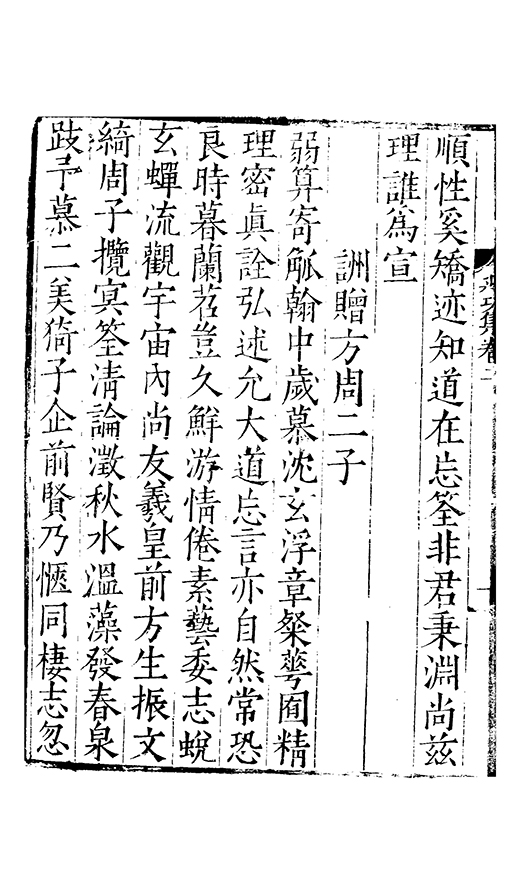 順性奚矯迹知道在忘筌非君秉淵尚兹
理誰爲宣
詶贈方周二子
弱算寄觚翰中歲慕沈玄浮章粲萼囿精
理密眞詮弘述允大道忘言亦自然常恐
良時暮蘭苕豈久鮮游情倦素藝委志蛻
玄蟬流觀宇宙內尚友羲皇前方生振文
綺周子攬㝠筌淸論澂秋水溫藻發春泉
跂予慕二美猗子企前賢乃愜同棲志忽
集卷二